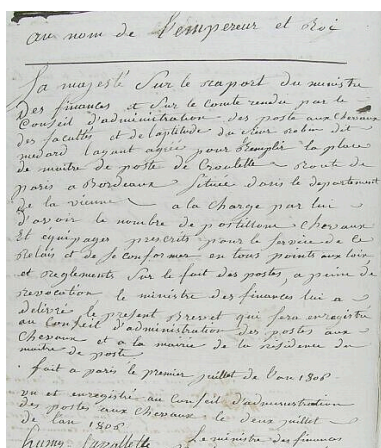 au nom de l'empereur et Roi
Sa majesté Sur le raport du ministre
des finances et Sur le comte rendu par le
Conseil d'administration des poste aux chevaux
des facultés et de l'aptitude du Sieur Robin dit
medard layant agréé pour Remplir la place
de maitre de poste de Croutelle route de
paris a Bordeaux Située dans le departement
de la vienne a la Charge par lui
d'avoir le nombre de postillons chevaux
Et equipages prescrits pour le Service de ce
Relais et de se conformer en tous points aux loix
et reglements Sur le fait des postes, a peine de
revocation le ministre des finances lui a
délivré le present Brevet qui sera enregistré
au Conseil d'administration des postes aux
Chevaux et a la mairie de la residence du
maitre de poste.
fait a paris le premier juillet de l'an 1808
vu et enregistré au Conseil d'administration
des postes aux chevaux le deux juillet
de l'an 1808
Lavallette Le ministre des finances